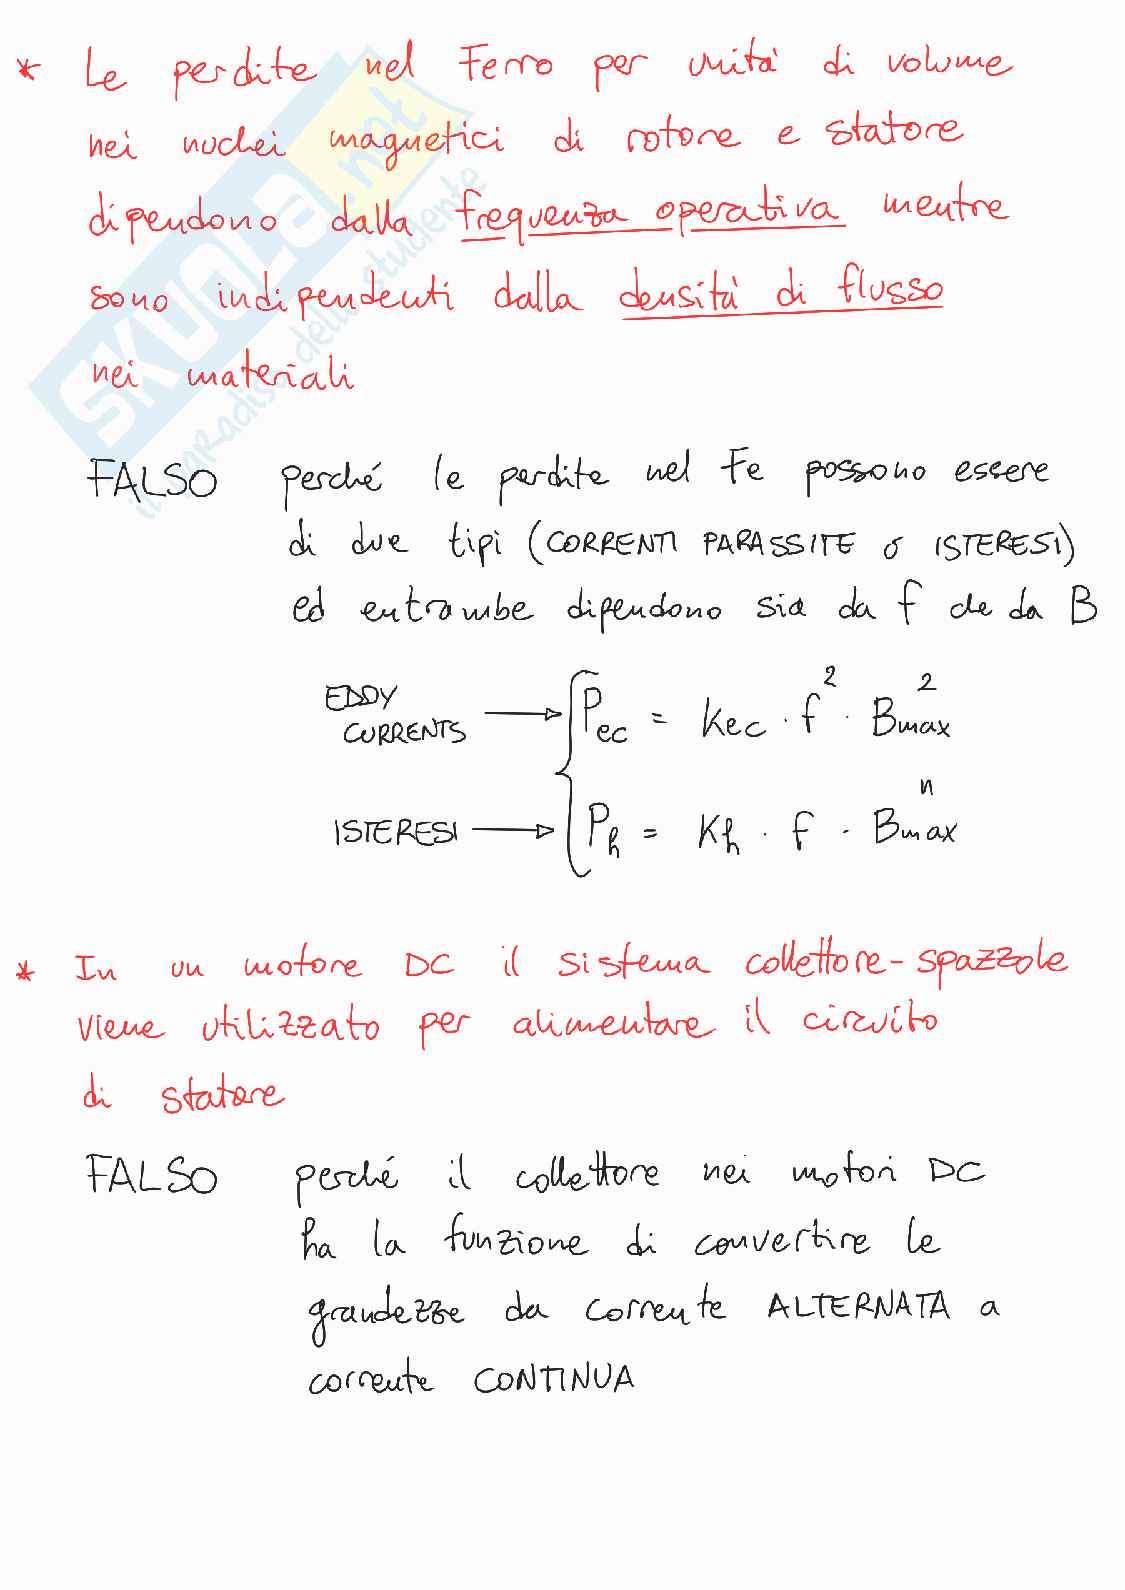 * Le perdite nel Ferro per unità di volume
nei nuclei magnetici di rotore e statore
dipendono dalla frequenza operativa mentre
sono indipendenti dalla densità di flusso
nei materiali
SKUOLA.net
il paradiso dello studente
FALSO perché le perdite nel Fe possono essere
di due tipi (CORRENTI PARASSITE o ISTERESI)
ed entrambe dipendono sia da f che da B
EDDY CURRENTS → P_ec = Kec · f² · Bmax²
ISTERESI → P_h = Kh · f · Bmaxⁿ
* In un motore DC il sistema collettore-spazzole
viene utilizzato per alimentare il circuito
di statore
FALSO perché il collettore nei motori DC
ha la funzione di convertire le
grandezze da corrente ALTERNATA a
corrente CONTINUA